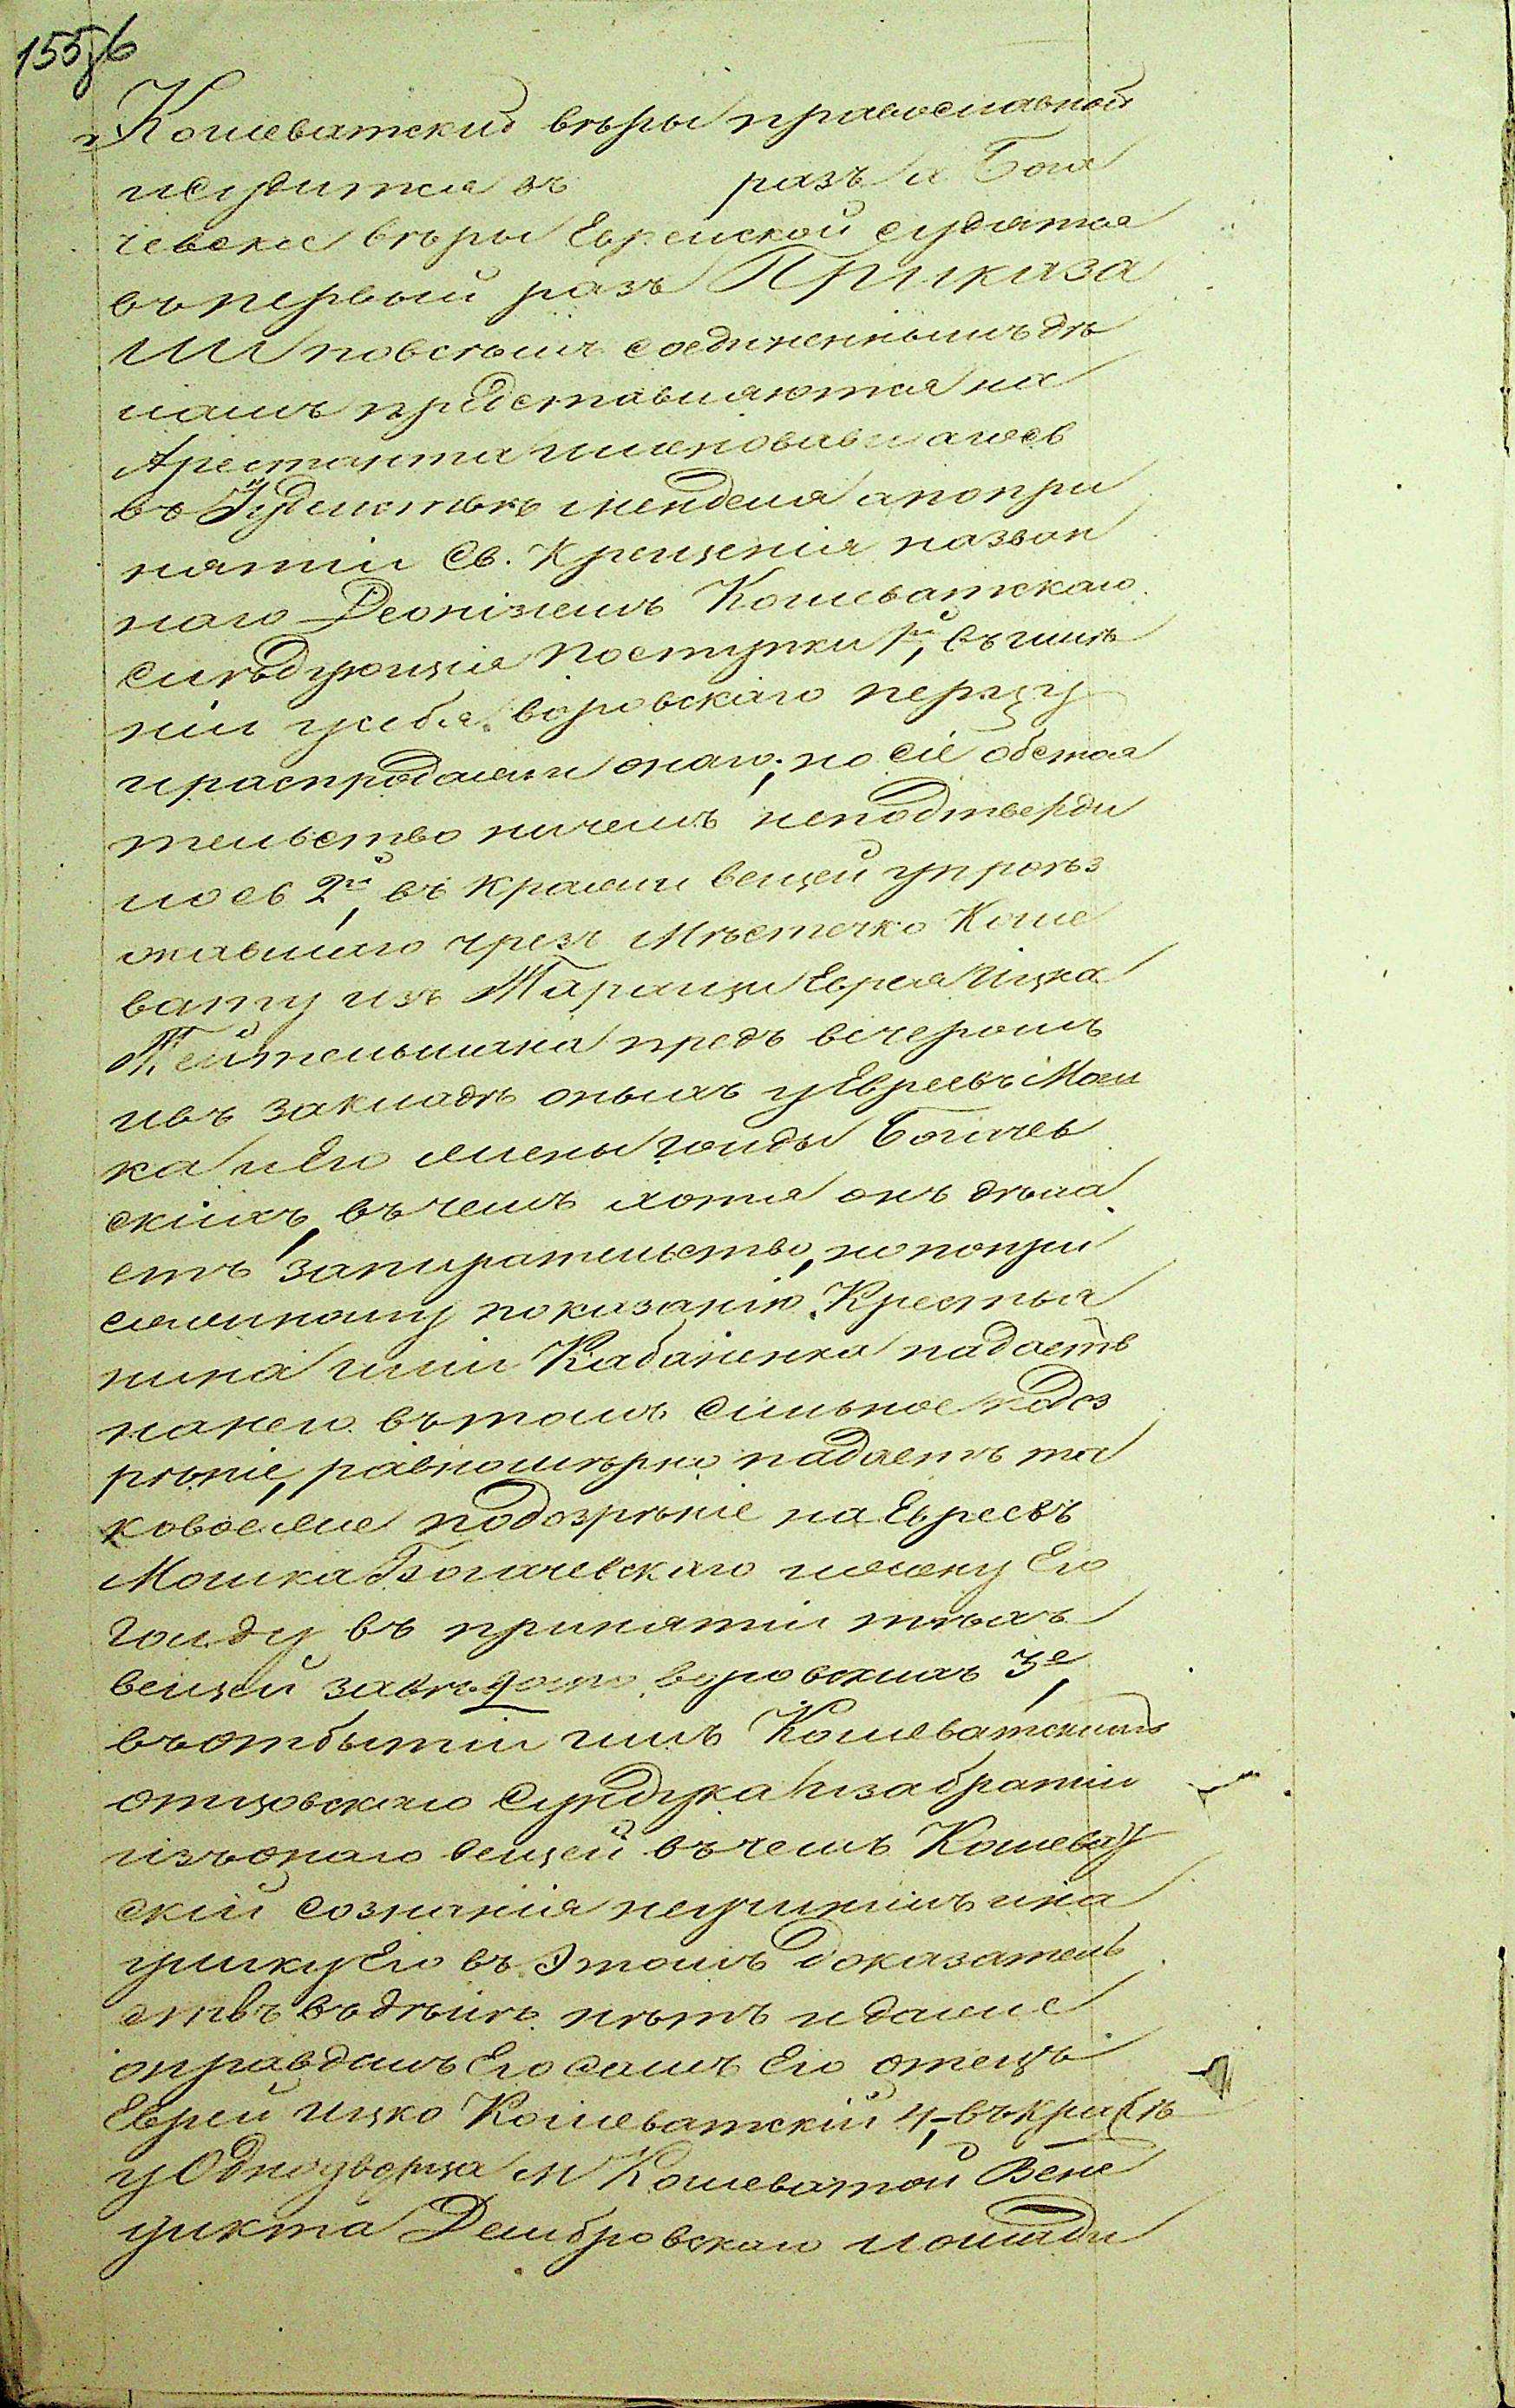 155об
Кошеватский вѣры православной
и судится въ разъ а Бога
чевские вѣры Еврейской судятся
въ первый разъ Приказа
ли повсѣмъ соединеннымъ дѣ
ламъ представляются на
Арестанта именовавшагось
въ Іудействѣ Менделя а по при
нятіи Св. Крещенія назван
наго Деонізіемъ Кошеватскаго
слѣдующія поступки 1й, въ имѣ
ніи у себя воровскаго перцу
и распродажи онаго; но сіе обстоя
тельство ничемъ неподтверди
лось 2й, въ кражи вещей у проѣз
жавшаго чрезъ Мѣстечко Коше
вату изъ Таращи Еврея Ицка
Тейтельмана предъ вечеромъ
и въ закладѣ оныхъ у Евреевъ Мош
ка и Его жены Голды Богачев
скихъ, въ чемъ хотя онъ дѣла
етъ запирательство, но по при
сяжному показанію Крестья
нина Иліи Кабаненка падаетъ
на него въ томъ сильное подоз
рѣніе, равномѣрно падаетъ та
ковое же подозрѣніе на Евреевъ
Мошка Богачевскаго и жену Его
Голду въ принятіи тѣхъ
вещей завѣдомо воровскихъ 3е,
въ отбытіи имъ Кошеватскимъ
отцовскаго Сундука и забратіи
изъ онаго вещей въ чемъ Кошеват
скій сознанія неучинилъ и на
улику Его въ этомъ доказатель
ствъ въ дѣлѣ нѣтъ и даже
оправдалъ Его самъ Его отецъ
Еврей Ицко Кошеватскій 4, въ кражѣ
у Однодворца м Кошеватой Вене
дикта Дембровскаго лошади